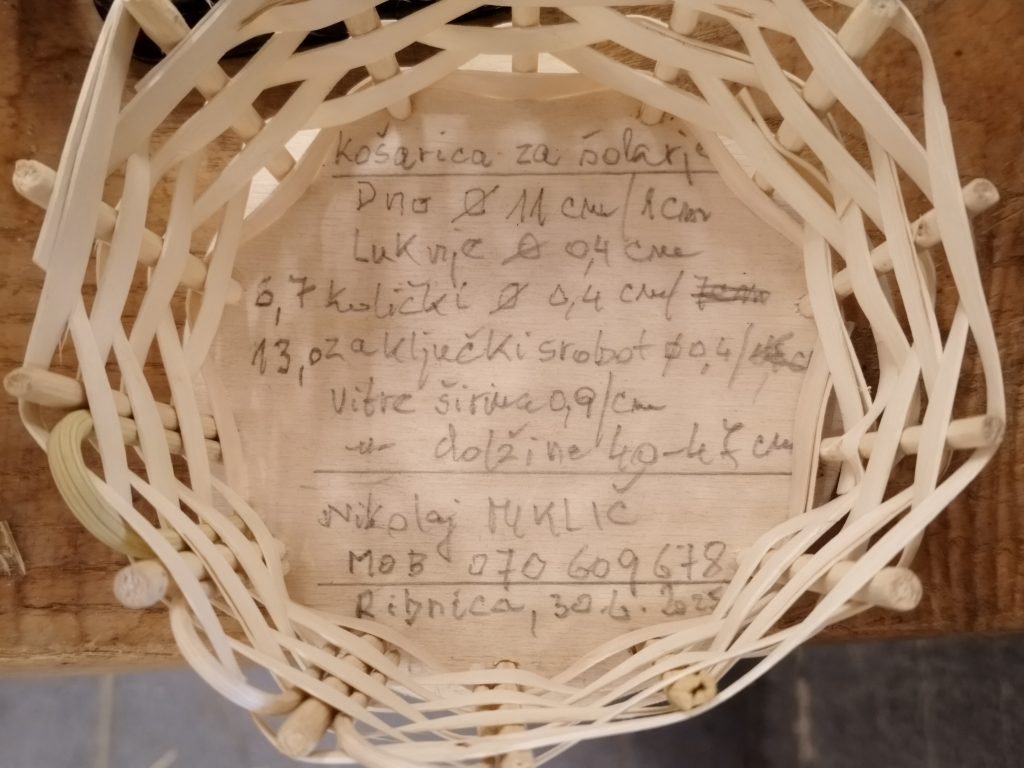 Košarica za šolarje
Dno Ø 11 cm/1cm
Luknje Ø 0,4 cm
6,7 količki Ø 0,4 cm/
13,0 zaključki srobot Ø 0,4/
Vitre širina 0,9/cm
-"- dolžine 49-47 cm
Nikolaj MIKLIČ
MOB 070 609 678
Ribnica, 30.6.2025